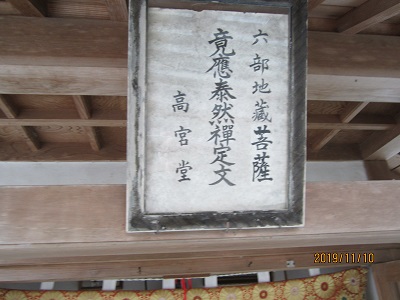 六部地蔵菩薩
竟應泰然禪定文
高宮堂
2019/11/10